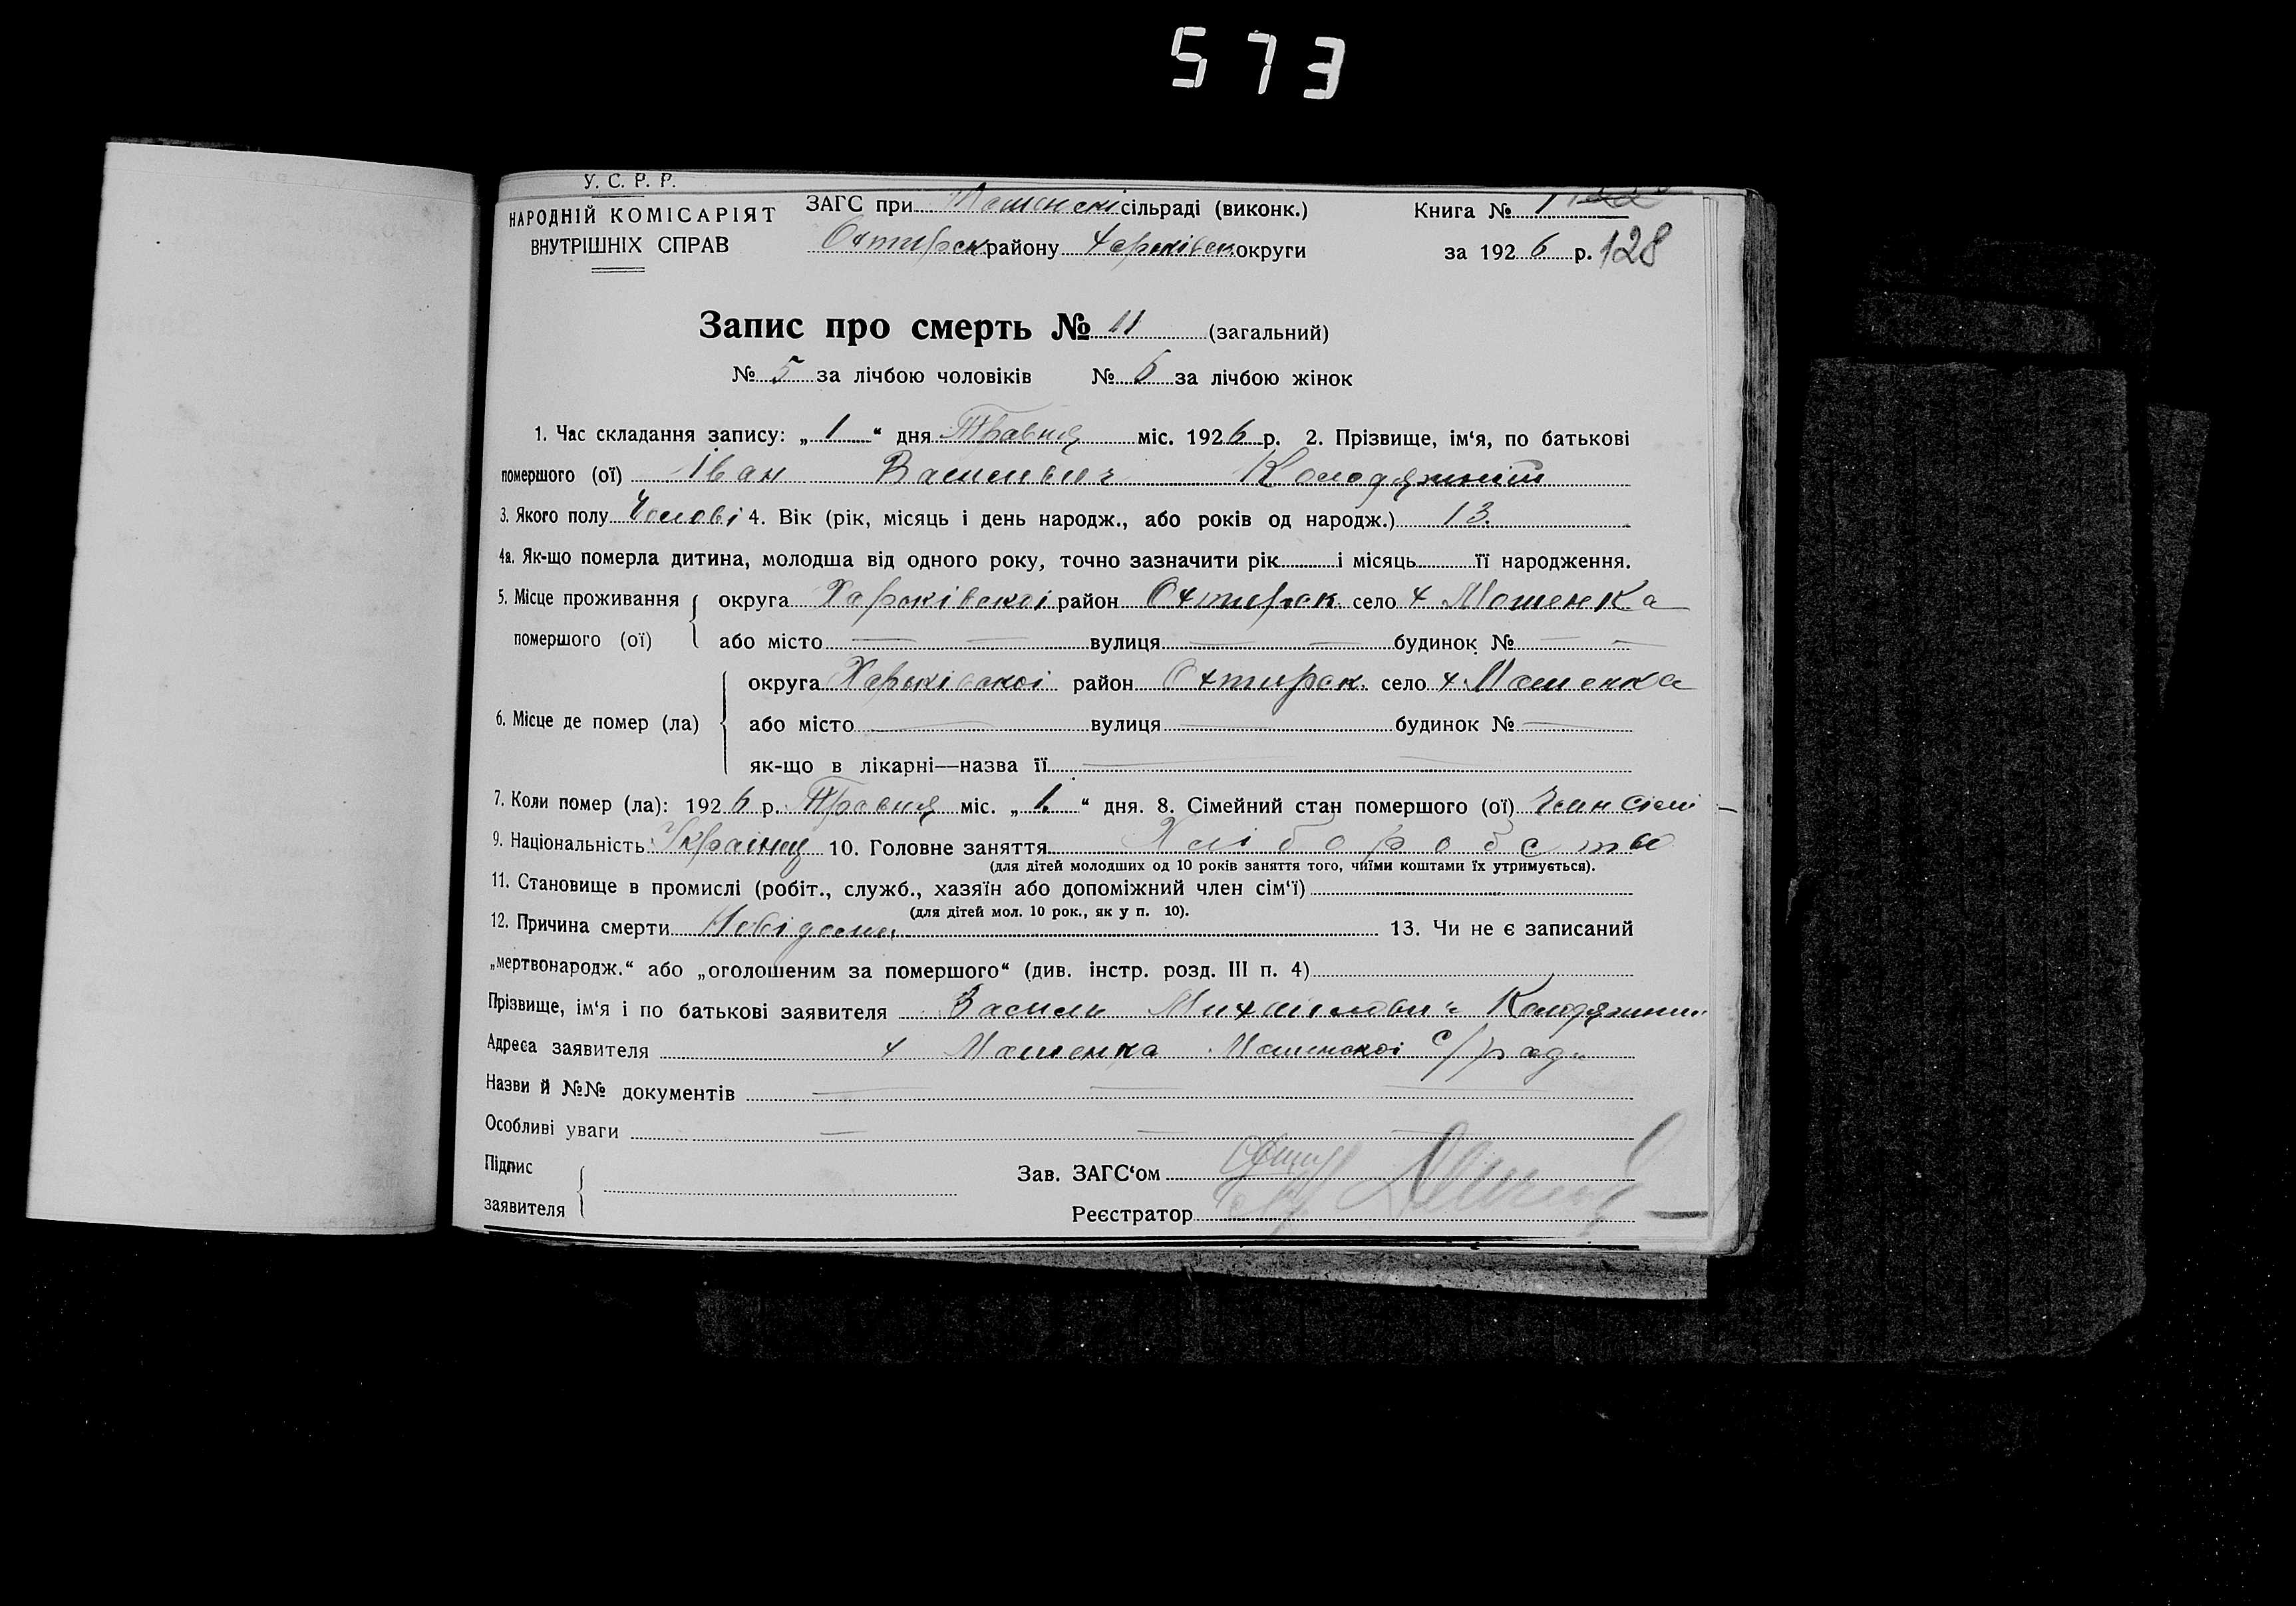 573
У. С. Р. Р.
НАРОДНІЙ КОМІСАРІЯТ
ВНУТРІШНІХ СПРАВ
ЗАГС при сільраді (виконк.)
Охтирск району Харківск округи
Книга № 1
за 1926 р. 128
Запис про смерть № 11 (загальний)
№ 5 за лічбою чоловіків № 6 за лічбою жінок
1. Час складання запису: „1“ дня Травня міс. 1926 р. 2. Прізвище, ім‘я, по батькові
помершого (ої) Іван Васильвич Колодяжний
3. Якого полу Чолові 4. Вік (рік, місяць і день народж., або років од народж.) 13.
4а. Як-що померла дитина, молодша від одного року, точно зазначити рік і місяць її народження.
5. Місце проживання помершого (ої) { округа Харківскоі район Охтирск. село х Мошенка
або місто — — вулиця — — будинок № — —
6. Місце де помер (ла) { округа Харківскоі район Охтирск. село х. Мошенка
або місто — вулиця — будинок № —
як-що в лікарні—назва її —
7. Коли помер (ла): 1926 р. Травня міс. „1.“ дня. 8. Сімейний стан помершого (ої) член сіμі
9. Національність Украінец 10. Головне заняття Хліборобство
(для дітей молодших од 10 років заняття того, чиїми коштами їх утримується).
11. Становище в промислі (робіт., служб., хазяїн або допоміжний член сім‘ї)
(для дітей мол. 10 рок., як у п. 10).
12. Причина смерти Невідома 13. Чи не є записаний
„мертвонародж.“ або „оголошеним за помершого“ (див. інстр. розд. III п. 4)
Прізвище, ім‘я і по батькові заявителя Василь Михайлович Колодяжний
Адреса заявителя х Мошенка Мошенскоі с/рад
Назви й №№ документів — — —
Особливі уваги — — —
Підпис заявителя {
Зав. ЗАГС‘ом
Реєстратор